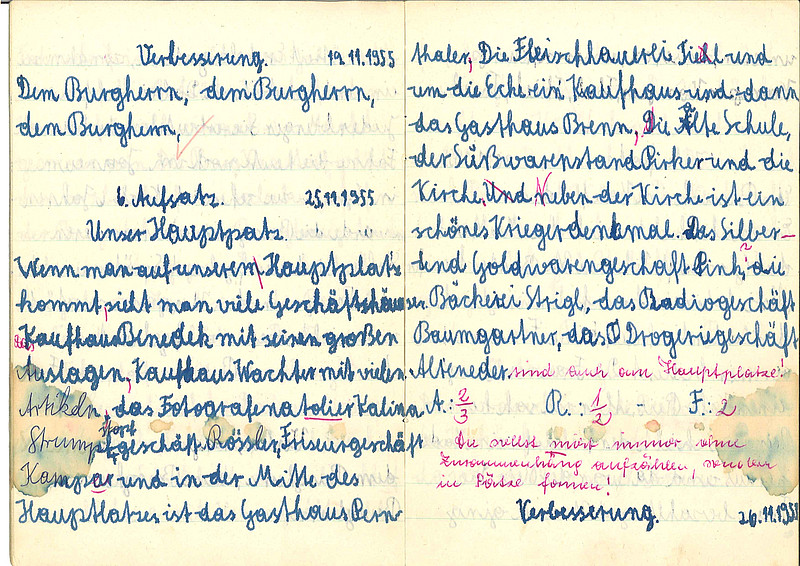 Verbesserung. 19.11.1955
Dem Burgherrn, dem Burgherrn,
dem Burgherrn,
6. Aufsatz. 25.11.1955
Unser Hauptplatz.
Wenn man auf unserem Hauptplatz
kommt, sieht man viele Geschäftshäuser.
das
Kaufhaus Benedek mit seinen großen
Auslagen, Kaufhaus Wachter mit vielen
Artikeln, das Fotografenatolier Kalinn
Strumpfgeschäft Rössler, Friseurgeschäft
Kampar und in der Mitte des
Hauptlatzes ist das Gasthaus Pern-
thaler, Die Fleischhauerei Fiehl und
um die Ecke ein Kaufhaus und dann
das Gasthaus Brenn, Die Alte Schule,
der Süßwarenstand Pirker und die
Kirche, Und neben der Kirche ist ein
schönes Kriegerdenkmal. Das Silber-
und Goldwarengeschäft Pink, ? die
Bäckerei Strigl, das Radiogeschäft
Baumgartner, das Drogeriegeschäft
Alteneder. sind auch am Hauptplatze!
A.: 2/3 R.: 1/2 - F.: 2
Du sollst nicht immer eine
aufzählen, sondern
in Sätze formen!
Verbesserung. 26.11.1955